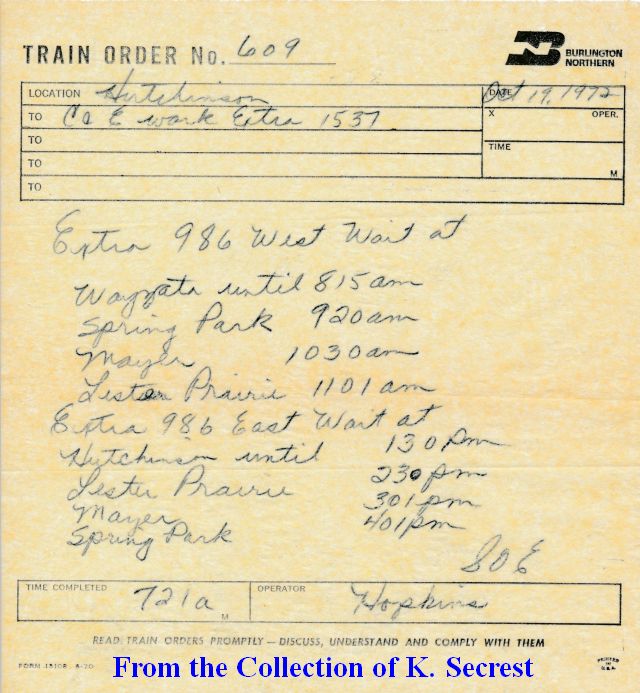 TRAIN ORDER No. 609
BURLINGTON
NORTHERN
LOCATION Hutchinson
DATE Oct 19, 1972
TO C&E work Extra 1537
X OPER.
TO
TIME
TO
M
TO
Extra 986 West Wait at
Wayzata until 815 am
Spring Park 920 am
Mayer 1030 am
Lester Prairie 1101 am
Extra 986 East Wait at
Hutchinson until 130 pm
Lester Prairie 230 pm
Mayer 301 pm
Spring Park 401 pm
SOE
TIME COMPLETED 721a M
OPERATOR Hopkins
READ TRAIN ORDERS PROMPTLY — DISCUSS, UNDERSTAND AND COMPLY WITH THEM
FORM 15108 8-70
PRINTED
IN
U.S.A.
From the Collection of K. Secrest